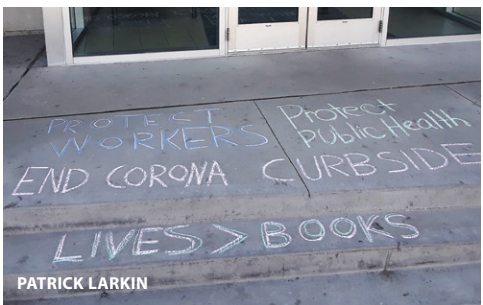 PROTECT
WORKERS
Protect
Public Health
END CORONA
CURBSIDE
LIVES > BOOKS
PATRICK LARKIN